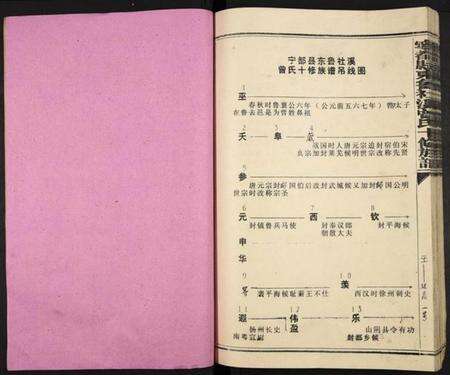 宁都县东鲁社溪
曾氏十修族谱吊线图
1
巫
春秋时鲁襄公六年（公元前五六七年）鄫太子
在鲁去邑是为曾姓鼻祖
2 3 4
夭 阜 点
战国时人唐元宗追封宿伯宋
真宗加封莱芜候明世宗改称先贤
5
参
唐元宗封郕国伯后改封武城候又加封郕国公明
世宗时改称宗圣
6 7 8
元 西 钦
封镇鲁兵马使 封奉议郎 封平海候
朝散大夫
申
华
9 10
羡
袭平海候耻新王不仕 西汉时徐州刺史
11 12 13
遐 伟 乐
盈
扬州长史 山阴县令有功
南粤宣尉 封都乡候